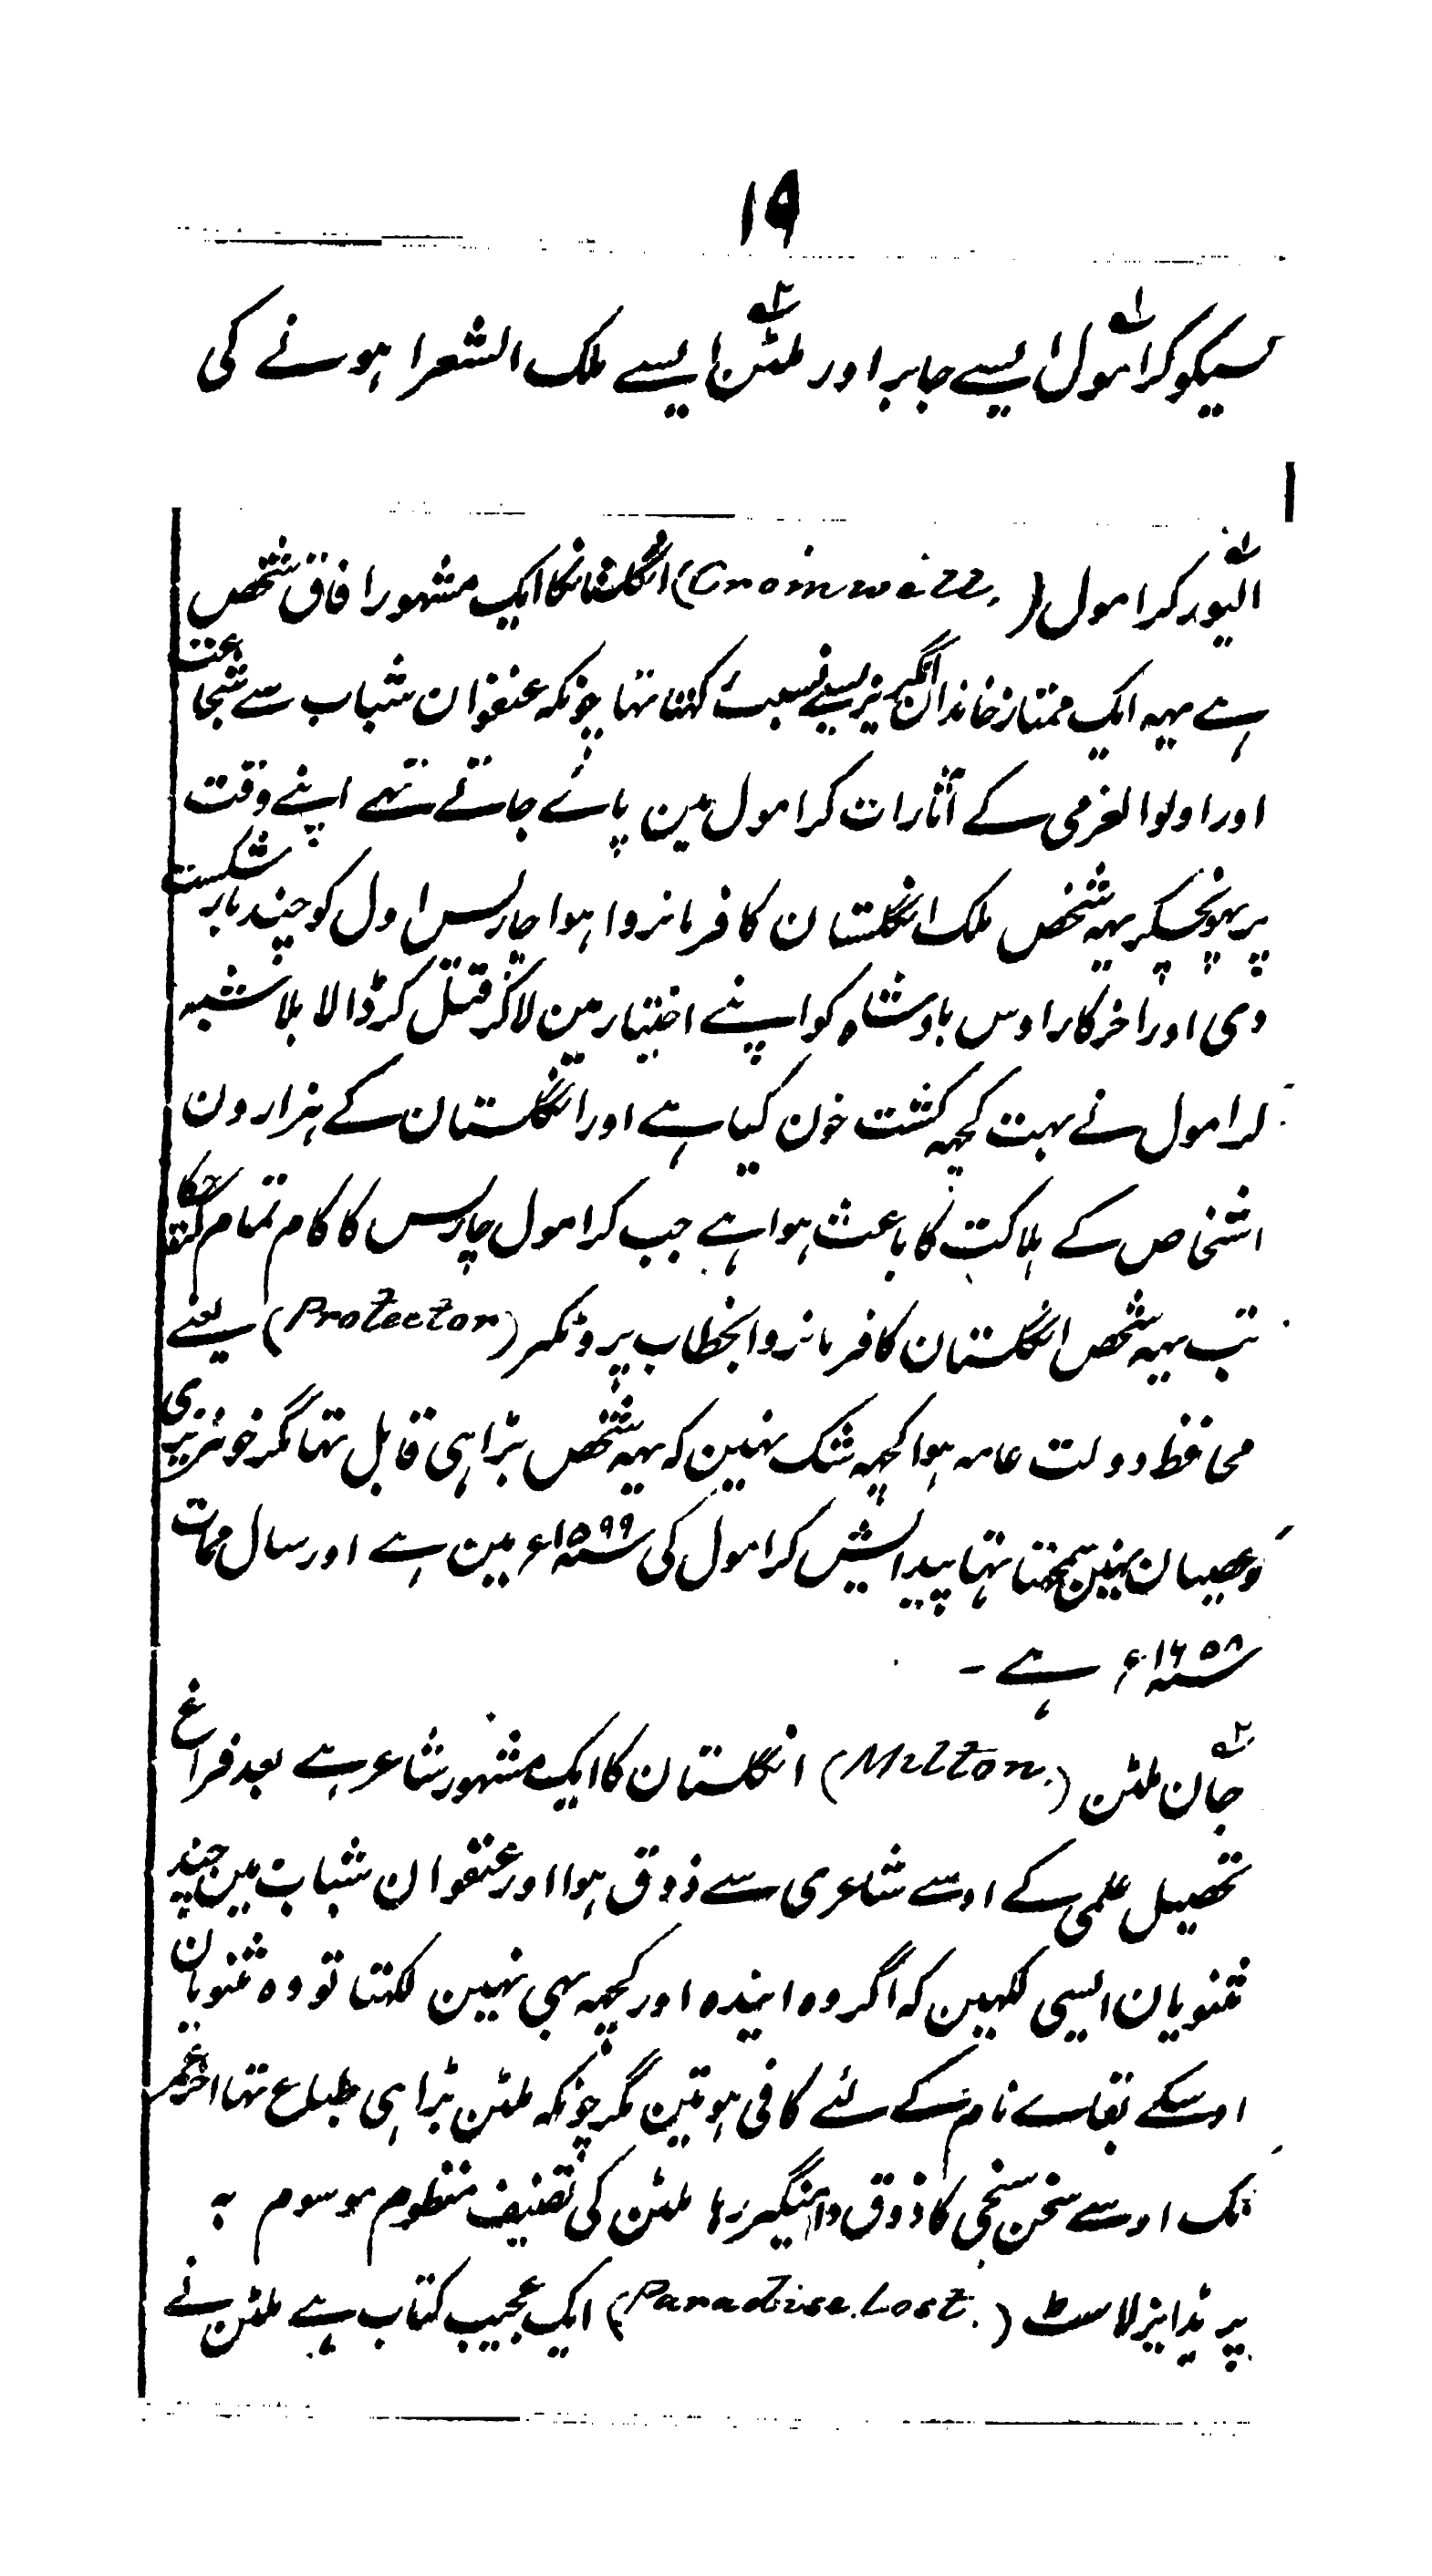 ۱۹
کسیکو کرامول۱؎ ایسے جابر اور ملٹن۲؎ ایسے ملک الشعرا ہونے کی
۱؎ الیور کرامول (Cromwell.) انگلستانکا ایک مشہور افاق شخص
ہے یہہ ایک ممتاز خاندان انگریزیسے نسبت رکہتا تہا چونکہ عنفوان شباب سے شجاعت
اور اولوالعزمی کے آثارات کرامول مین پائے جاتے تہے اپنے وقت
پر پہونچکر یہہ شخص ملک انگلستان کا فرمانروا ہوا چارلس اول کو چند بار شکست
دی اور اخر کار اوس بادشاہ کو اپنے اختیار مین لا کر قتل کر ڈالا بلا شبہہ
کرامول نے بہت کچہہ کشت خون کیا ہے اور انگلستان کے ہزارون
اشخاص کے ہلاکت کا باعث ہوا ہے جب کرامول چارلس کا کام تمام کر چکا
تب یہہ شخص انگلستان کا فرمانروا بخطاب پروٹکٹر (Protector) یعنے
محافظ دولت عامہ ہوا کچہہ شک نہین کہ یہہ شخص بڑا ہی قابل تہا مگر خونریزی
کو عصیان نہین سمجہتا تہا پیدایش کرامول کی سنہ ۱۵۹۹ء مین ہے اور سال ممات
سنہ ۱۶۵۸ء ہے ۔
۲؎ جان ملٹن (Milton.) انگلستان کا ایک مشہور شاعر ہے بعد فراغ
تحصیل علمی کے اوسے شاعری سے ذوق ہوا اور عنفوان شباب مین چند
مثنویان ایسی لکہین کہ اگر وہ ایندہ اور کچہہ بہی نہین لکہتا تو وہ مثنویان
اوسکے بقاے نام کے لئے کافی ہوتین مگر چونکہ ملٹن بڑا ہی طباع تہا اخر عمر
تک اوسے سخن سنجی کا ذوق دامنگیر رہا ملٹن کی تصنیف منظوم موسوم بہ
پریڈایز لاسٹ (Paradise Lost.) ایک عجیب کتاب ہے ملٹن نے